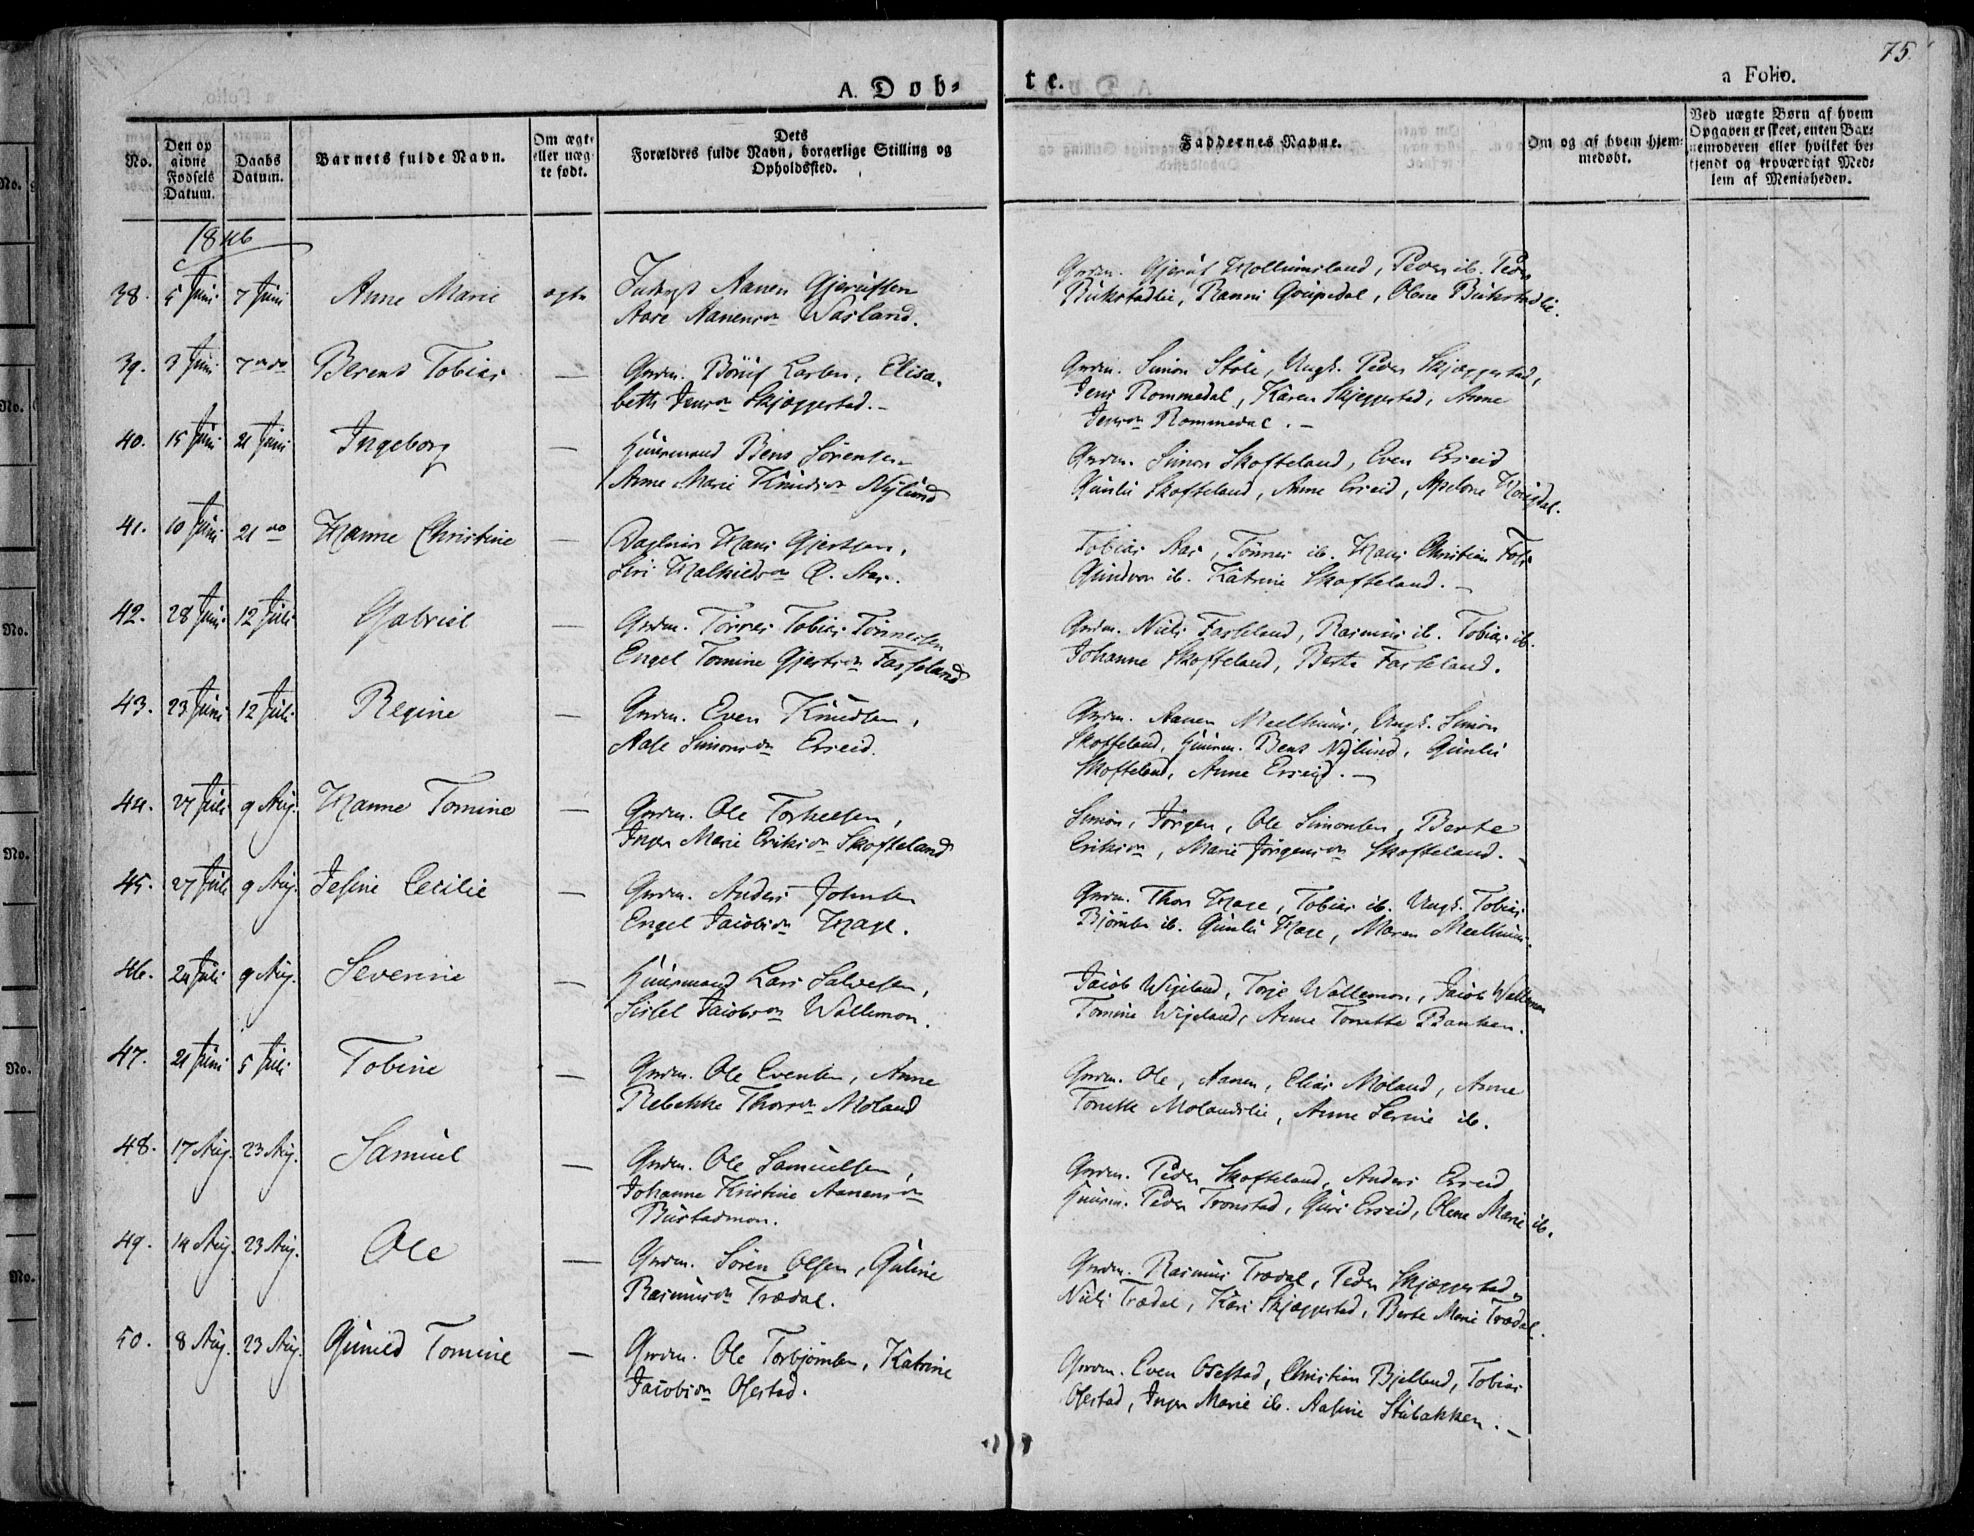 75.
A. Døb-
te.
a Folio.
No.
Den op
givne
Fødsels
Datum.
Daabs
Datum.
Barnets fulde Navn.
Om ægte
eller uæg-
te født.
Dets
Forældres fulde Navn, borgerlige Stilling og
Opholdssted.
Faddernes Navne.
Om og af hvem hjem-
medøbt.
Ved uægte Børn af hvem
Opgaven er skeet, enten Bar-
nemoderen eller hvilket be-
kjendt og troværdigt Med-
lem af Menigheden.
1846
38. 5 Juni 7 Juni Anne Marie ægte Aanen Gjerutsen
Aanensdn Wasland.
Gjerut Hollumsland, Peder ib. Peder
Olene
39. 3 Juni 7 do Berent Tobias — Grdm. Larsen, Elisa-
beth Jensdn Skjæggestad. —
Grdm. Simon Støle, Ungk. Peder Skjæggestad,
Jens Rommedal, Karen Skjeggestad, Anne
Jensdn Rommedal. —
40. 15 Juni 21 Juni Ingeborg — Huusmand Bens Sørensen
Anne Marie Knudsdn Nylund
Grdm. Simon Skofteland, Even Erseid
Gunlu Skofteland, Anne Erseid,
41. 10 Juni 21 do Hanne Christine — Hans Gjertsen,
Siri
Tobias Aas, Tønnes ib. Hans Christian
Gundvor ib. Katrine Skofteland. —
42. 28 Juni 12 Juli Gabriel — Grdm. Tønnes Tobias Tønnessen
Engel Tomine Gjertsdn Fasseland
Grdm. Niels Fasseland, Rasmus ib. Tobias ib.
Johanne Skofteland, Berte Fasseland.
43. 23 Juni 12 Juli Regine — Grdm. Even Knudsen,
Aase Simonsdn Erseid.
Grdm. Aanen Meelhuus, Ungk. Simon
Skofteland, Huusm. Bens Nylund, Gunlu
Skofteland, Anne Erseid. —
44. 27 Juli 9 Aug. Hanne Tomine — Grdm. Ole Torkelsen,
Inger Marie Eriksdn Skofteland
Simon, Jørgen, Ole Simonsen, Berte
Eriksdn, Marie Jørgensdn Skofteland. —
45. 27 Juli 9 Aug. Jesine Cecilie — Grdm. Anders Johnsen
Engel Jacobsdn Hage.
Grdm. Thor Hage, Tobias ib. Ungk. Tobias
Bjørnsen ib. Gunlu Hage, Maren Meelhuus.
46. 24 Juli 9 Aug. Severine — Huusmand Lars Salvesen,
Sissel Jacobsdn Wallemon.
Jacob Wigeland, Torje Wallemon, Jacob Wallemon
Tomine Wigeland, Anne Tonette Banken.
47. 21 Juni 5 Juli Tobine — Grdm. Ole Evensen, Anne
Rebekke Thorsdn Moland
Grdm. Ole, Aanen, Elias Moland, Anne
Tonette Molandslie, Anne Serine ib.
48. 17 Aug. 23 Aug. Samuel — Grdm. Ole Samuelsen,
Johanne Kristine Aanensdn
Bustadmon.
Grdm. Peder Skofteland, Anders Erseid
Huusm. Peder Tronstad, Guri Erseid, Olene Marie ib.
49. 14 Aug. 23 Aug. Ole — Grdm. Søren Olsen, Guline
Rasmusdn Trædal.
Grdm. Rasmus Trædal, Peder Skjæggestad,
Niels Trædal, Kari Skjæggestad, Berte Marie Trædal.
50. 8 Aug. 23 Aug. Gunild Tomine — Grdm. Ole Torbjørnsen, Katrine
Jacobsdn Ofestad.
Grdm. Even Ofestad, Christian Bjelland, Tobias
Ofestad, Inger Marie ib. Aasine Stubakken. —